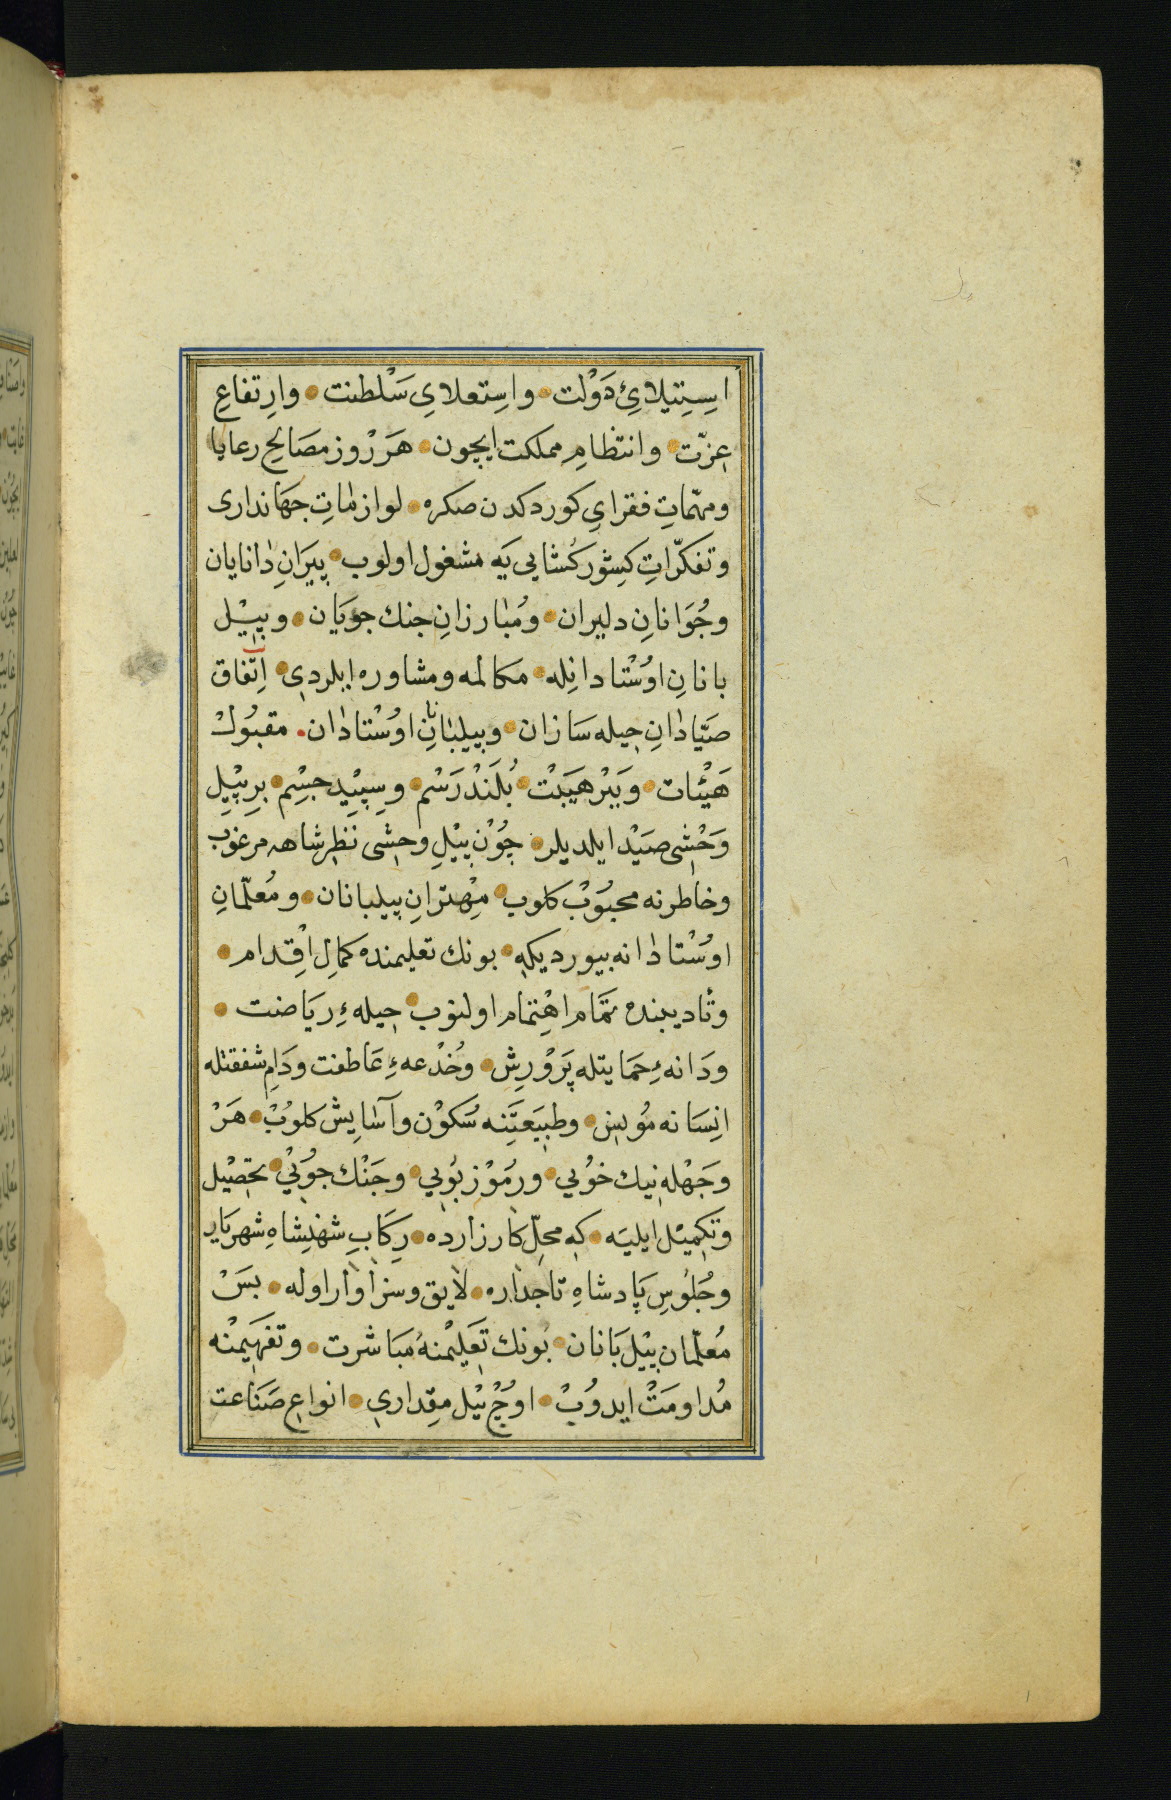 استیلائِ دَوْلت • واستعلایِ سَلْطنت • وارتفاعِ
عزّت • وانتظامِ مملکت ایچون • هَرْ رُوز مصَالحِ رعایا
ومهمّاتِ فقرایِ کوردکدن صکره • لوازماتِ جهَانداری
وتفکّراتِ کِشْوَر کُشایی یَه مشغول اولوب • پیرَانِ دانایان
وجُوَانانِ دلیران • ومُبارزانِ جنك جویَان • وپیْل
بانانِ اوُسْتادانله • مکالمه ومشاوره ایلردی • اِتّفاق
صَیّادانِ حیله سَازان • وپیلبانانِ اوُسْتادان • مقبُولْ
هَیْئات • وَبَبْر هَیبَتْ • بُلَنْد رَسْم • وسِپیدِ جسْم • بر پیْلِ
وَحْشی صَیْد ایلدیلر • چُوْن پیْلِ وحشی نظر شاهه مرغوب
وخاطرنه محبُوْب کلوب • مِهْترانِ پیلبانان • ومُعلّمانِ
اوُسْتادانه بیوردیکه • بونك تعلیمنده کمالِ اقدام •
وتأدیبنده تمَام اهْتِمام اولنوب • حیلهءِ ریَاضت •
ودَانهءِ حمَایتله پَرْوَرِش • وخُدْعهءِ عَاطفت ودَامِ شفقتله
انِسَانه مُونِس • وطبیَعتنه سُکوْن وآسَایش کلوُبْ • هَرْ
وَجهْله نیك خوُیی • ورُمُوْز بُویی • وجَنْك جوُیی • تحصْیل
وتکمیْل ایلیه • که محلِّ کارزارده • رِکَابِ شهنِشاهِ شهریَار
وجُلوُسِ پادشاهِ تاجداره • لایق وسزاوار اوله • بسَ
مُعلّمان پیْل بَانان • بُونك تَعَلیْمنه مُبَاشرت • وتفهَیمْنه
مُداومَتْ ایدوُبْ • اوُچْ یْیل مِقداری • انواعِ صَنَاعت